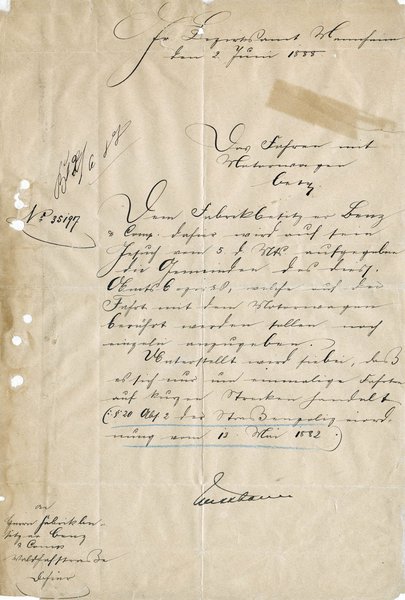 Gr. Bezirksamt Mannheim
den 2. Juni 1888
Das Fahren mit
Motorwagen
betr.
No 35197
Dem Fabrikbesitzer Benz
& Comp. dahier wird auf sein
Gesuch vom 5. d. Mts. aufgegeben
die Gemeinden des
Amtsbezirks, welche auf der
Fahrt mit dem Motorwagen
berührt werden sollen noch
einzeln anzugeben.
Unterstellt wird hiebei, daß
es sich nur um einmalige Fahrten
auf kurzen Strecken handelt
(: § 20 Abs 2 der Straßenpolizeiord-
nung vom 12 Mai 1882 :)
An
Herrn Fabrikbe-
sitzer Benz
& Comp
Waldhofstraße
dahier